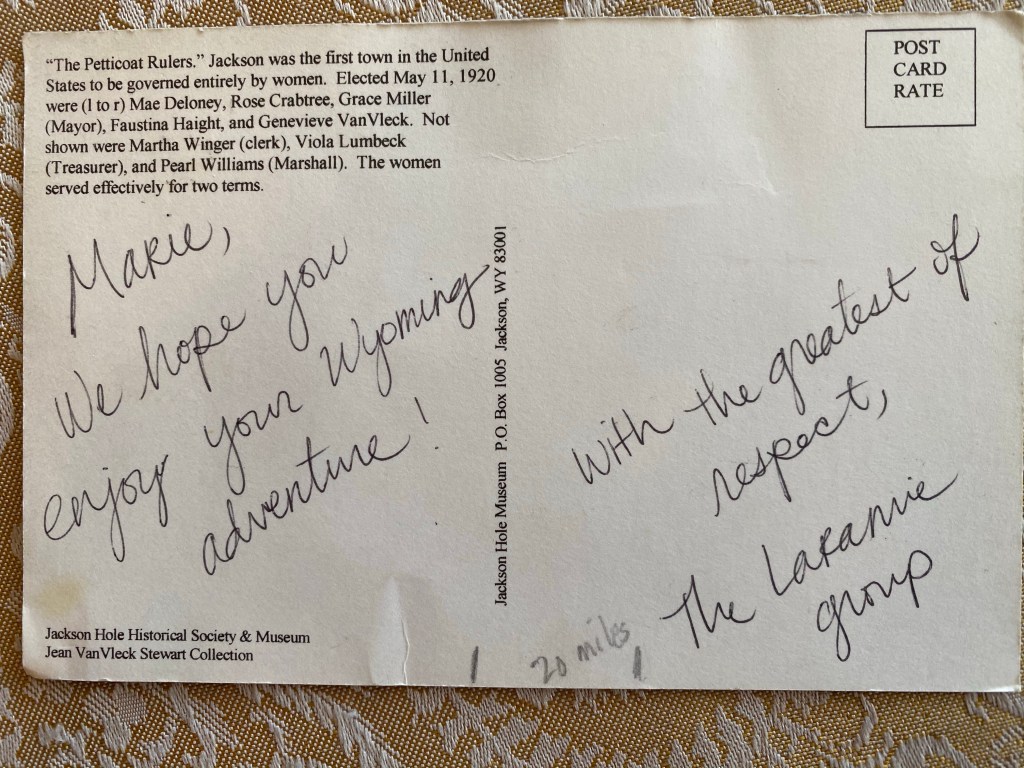 "The Petticoat Rulers." Jackson was the first town in the United
States to be governed entirely by women. Elected May 11, 1920
were (l to r) Mae Deloney, Rose Crabtree, Grace Miller
(Mayor), Faustina Haight, and Genevieve VanVleck. Not
shown were Martha Winger (clerk), Viola Lumbeck
(Treasurer), and Pearl Williams (Marshall). The women
served effectively for two terms.
POST
CARD
RATE
Marie,
We hope you
enjoy your Wyoming
adventure!
Jackson Hole Museum P.O. Box 1005 Jackson, WY 83001
With the greatest of
respect,
The Laramie
group
20 miles
Jackson Hole Historical Society & Museum
Jean VanVleck Stewart Collection